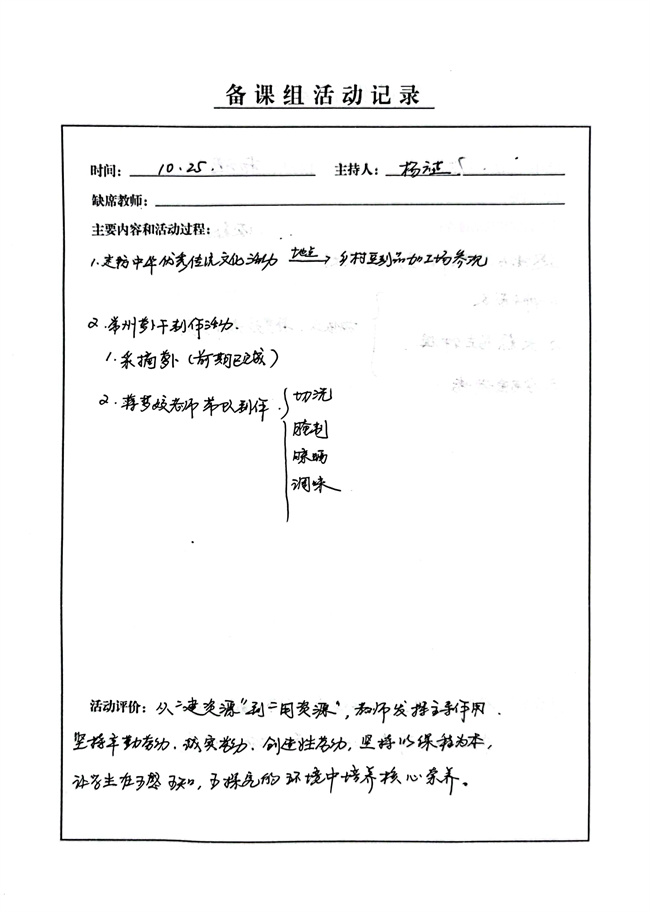 备课组活动记录
时间: 10.25. 主持人: 杨
缺席教师:
主要内容和活动过程:
1.走访中华优秀传统文化活动 地点 → 乡村豆制品加工场参观
2.常州萝卜干制作活动.
1.采摘萝卜(前期已完成)
2.蒋梦姣老师带队制作.
切洗
腌制
晾晒
调味
活动评价: 从"建资源"到"用资源",教师发挥主导作用.
坚持辛勤劳动.诚实劳动.创造性劳动,坚持以课程为本,
让学生在可感可知,可探究的环境中培养核心素养。